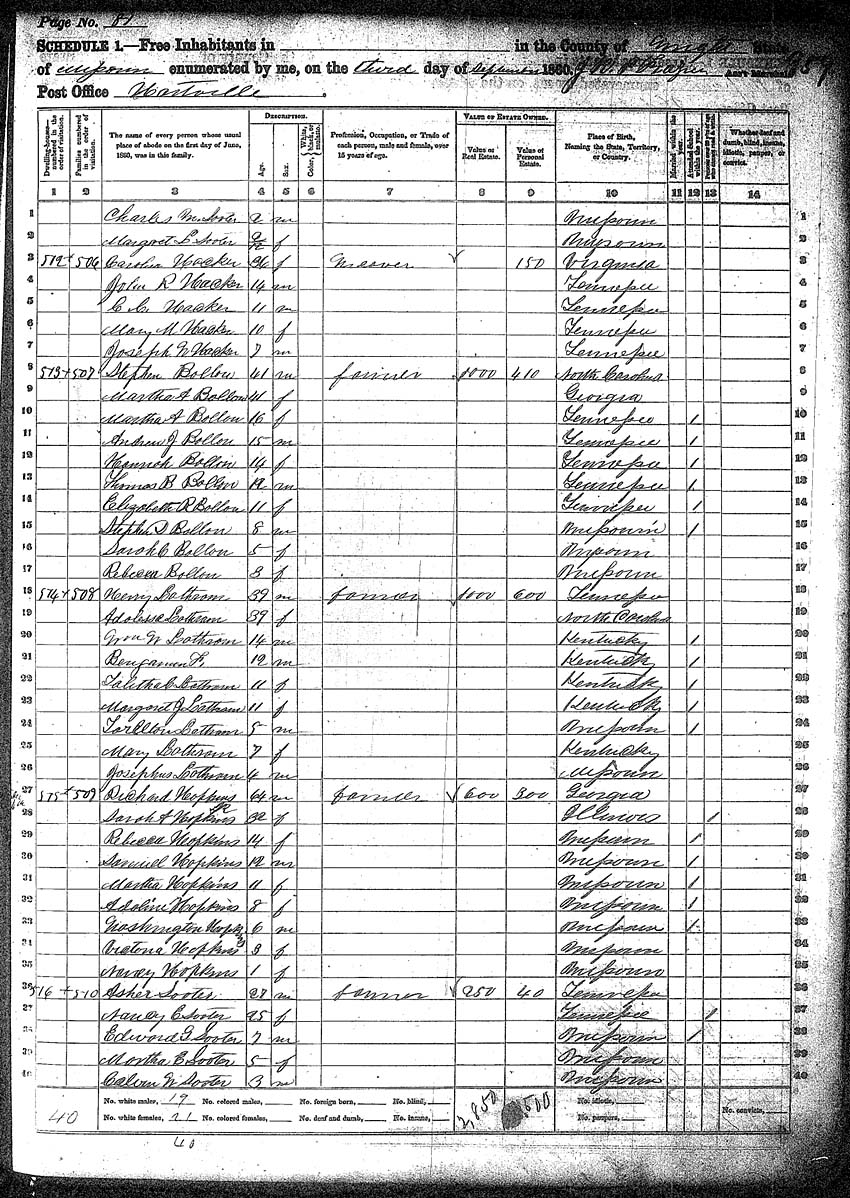 Page No. 81
SCHEDULE 1.—Free Inhabitants in in the County of Wright State
of Missouri enumerated by me, on the third day of September 1860. Ass't Marshal
Post Office Hartville
Dwelling-houses—numbered in the order of visitation.
Families numbered in the order of visitation.
The name of every person whose usual place of abode on the first day of June, 1860, was in this family.
DESCRIPTION.
Age.
Sex.
Color, {White, black, or mulatto.
Profession, Occupation, or Trade of each person, male and female, over 15 years of age.
VALUE OF ESTATE OWNED.
Value of Real Estate.
Value of Personal Estate.
Place of Birth, Naming the State, Territory, or Country.
Married within the year.
Attended School within the year.
Whether deaf and dumb, blind, insane, idiotic, pauper, or convict.
1 2 3 4 5 6 7 8 9 10 11 12 13 14
1 Charles M Sooter 2 m Missouri 1
2 Margret L Sooter 9/12 f Missouri 2
3 512 506 Carolin Hacker 36 f Weaver 150 Virginia 3
4 John R Hacker 14 m Tennessee 4
5 C C Hacker 11 m Tennessee 5
6 Mary M Hacker 10 f Tennessee 6
7 Joseph N Hacker 7 m Tennessee 7
8 513 507 Stephen Bollon 41 m farmer 1000 410 North Carolina 8
9 Martha A Bollon 41 f Georgia 9
10 Martha A Bollon 16 f Tennessee 1 10
11 Andrew J Bollon 15 m Tennessee 1 11
12 Hannah Bollon 14 f Tennessee 1 12
13 Thomas B Bollon 12 m Tennessee 1 13
14 Elizabeth R Bollon 11 f Tennessee 1 14
15 Stephen D Bollon 8 m Missouri 1 15
16 Sarah C Bollon 5 f Missouri 16
17 Rebecca Bollon 3 f Missouri 17
18 514 508 Henry Lathrom 39 m farmer 1000 600 Tennessee 18
19 Adolesia Lathrom 39 f North Carolina 19
20 Wm W Lathrom 14 m Kentucky 1 20
21 Benjamin F, 12 m Kentucky 1 21
22 Talitha C Lathrom 11 f Kentucky 1 22
23 Margaret J Lathram 11 f Kentucky 1 23
24 Tarllton Lathram 5 m Missouri 1 24
25 Mary Lathrom 7 f Kentucky 25
26 Josephus Lathrom 4 m Missouri 26
27 515 509 Richard Hopkins Sr 64 m farmer 600 300 Georgia 27
28 Sarah A Hopkins 32 f Illinois 1 28
29 Rebecca Hopkins 14 f Missouri 1 29
30 Samuel Hopkins 12 m Missouri 1 30
31 Martha Hopkins 11 f Missouri 1 31
32 Adoline Hopkins 8 f Missouri 1 32
33 Washington Hopkins 6 m Missouri 1 33
34 Victoria Hopkins 3 f Missouri 34
35 Nancy Hopkins 1 f Missouri 35
36 516 510 Asher Sooter 27 m farmer 250 40 Tennessee 36
37 Nancy C Sooter 25 f Tennessee 1 37
38 Edward G Sooter 7 m Missouri 1 38
39 Martha E Sooter 5 f Missouri 39
40 Calvin W Sooter 3 m Missouri 40
No. white males, 19 No. colored males, No. foreign born, No. blind, No. idiotic,
40 No. white females, 21 No. colored females, No. deaf and dumb, No. insane, 2,850 1500 No. paupers, No. convicts,
40